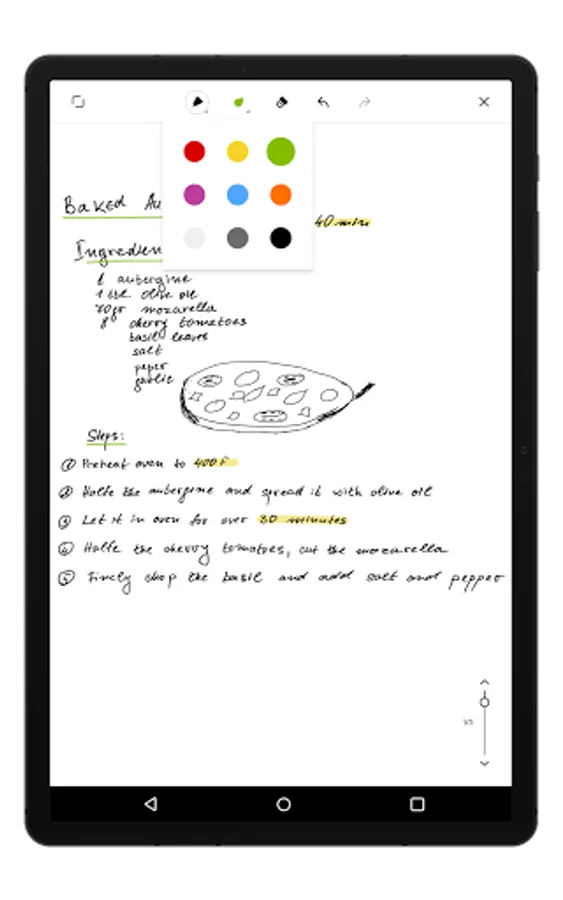 Baked Au
40 mins
Ingredien
1 aubergine
1 tbl. olive oil
70gr mozarella
8 cherry tomatoes
basil leaves
salt
peper
garlic
Steps:
① Preheat oven to 400F
② Halfe the aubergine and spread it with olive oil
③ Let it in oven for over 30 minutes
④ Halfe the cherry tomatoes, cut the mozarella
⑤ Finely chop the basil and add salt and pepper